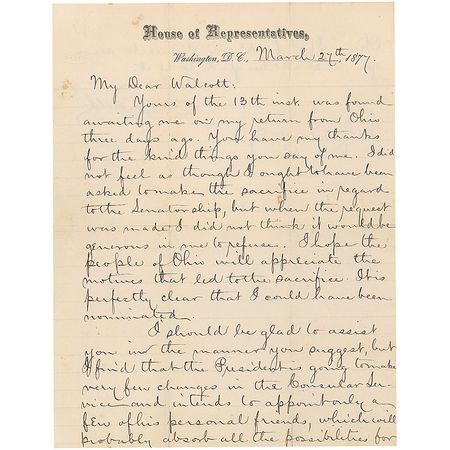 House of Representatives,
Washington, D.C., March 27th, 1877.
My Dear Walcott:
Yours of the 13th inst. was found
awaiting me on my return from Ohio
three days ago. You have my thanks
for the kind things you say of me. I did
not feel as though I ought to have been
asked to make the sacrifice in regard
to the Senatorship, but when the request
was made I did not think it would be
generous in me to refuse. I hope the
people of Ohio will appreciate the
motives that led to the sacrifice. It is
perfectly clear that I could have been
nominated.
I should be glad to assist
you in the manner you suggest, but
I find that the President is going to make
very few changes in the Consular Ser-
vice and intends to appoint only a
few of his personal friends, which will
probably absorb all the possibilities for